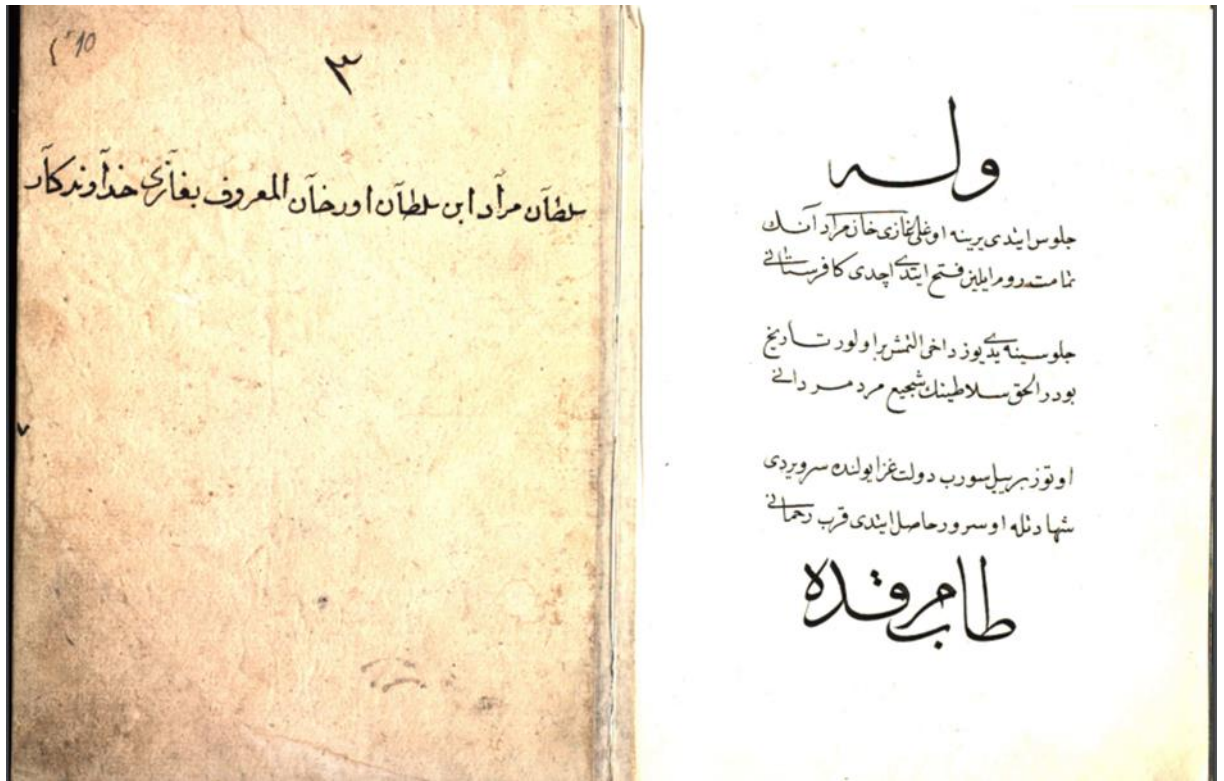 10
٣
سلطان مراد ابن سلطان اورخان المعروف بغازی خداوندکار
وله
جلوس ایتدی یرینه اوغلی غازی خان مراد آنك
تمامت روم ایلین فتح ایتدی اچدی کافرستانی
جلوسینه یدی یوز داخی التمش بر اولور تاریخ
بودر الحق سلاطینك شجیع مرد مردانی
اوتوز بر ییل سورب دولت غزا یولنده سر ویردی
شهادتله او سرور حاصل ایتدی قرب رحمانی
طاب مرقده